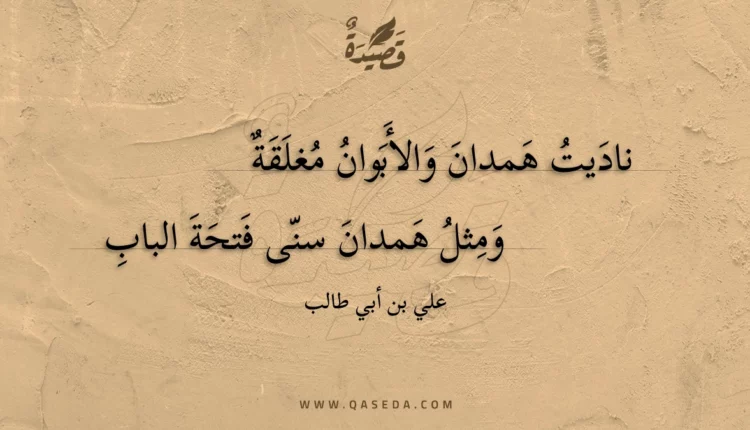 قَصِيدَةٌ
نادَيتُ هَمدانَ وَالأَبَوانُ مُغلَقَةٌ
وَمِثلُ هَمدانَ سنّى فَتحَةَ البابِ
علي بن أبي طالب
WWW.QASEDA.COM